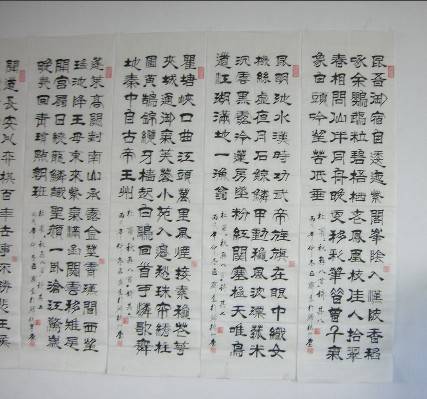 昆吾御宿自逶迤紫閣峯陰入渼陂香稻
啄余鸚鵡粒碧梧栖老鳳凰枝佳人拾翠
春相問仙侶同舟晚更移彩筆昔曾干氣
象白頭吟望苦低垂
杜甫秋興八首 其八
昆明池水漢時功武帝旌旗在眼中織女
機絲虛夜月石鯨鱗甲動秋風波漂菰米
沉雲黑露冷蓮房墜粉紅關塞極天唯鳥
道江湖滿地一漁翁
杜甫秋興八首 其七
瞿塘峽口曲江頭萬里風煙接素秋花萼
夾城通御氣芙蓉小苑入邊愁珠簾繡柱
圍黃鵠錦纜牙檣起白鷗回首可憐歌舞
地秦中自古帝王州
蓬萊高闕對南山承露金莖霄漢間西望
瑤池降王母東來紫氣滿函關雲移雉尾
開宮扇日繞龍鱗識聖顏一臥滄江驚歲
晚幾回青瑣點朝班
聞道長安似弈棋百年世事不勝悲王侯